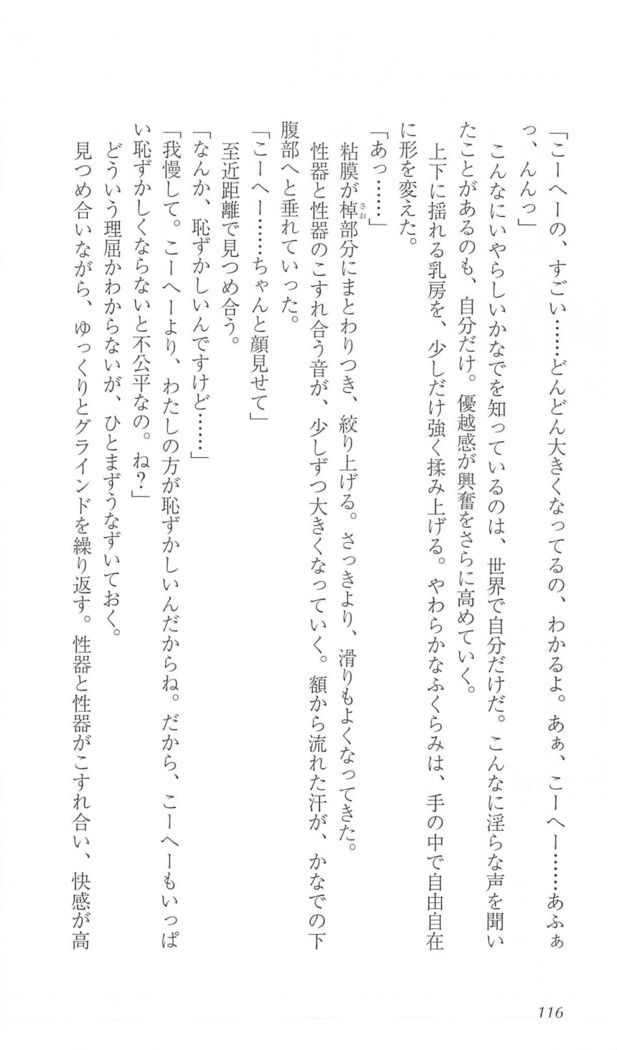 「こーへーの、すごい……どんどん大きくなってるの、わかるよ。あぁ、こーへー……あふぁ
っ、んんっ」
こんなにいやらしいかなでを知っているのは、世界で自分だけだ。こんなに淫らな声を聞い
たことがあるのも、自分だけ。優越感が興奮をさらに高めていく。
上下に揺れる乳房を、少しだけ強く揉み上げる。やわらかなふくらみは、手の中で自由自在
に形を変えた。
「あっ……」
粘膜が棹さお部分にまとわりつき、絞り上げる。さっきより、滑りもよくなってきた。
性器と性器のこすれ合う音が、少しずつ大きくなっていく。額から流れた汗が、かなでの下
腹部へと垂れていった。
「こーへー……ちゃんと顔見せて」
至近距離で見つめ合う。
「なんか、恥ずかしいんですけど……」
「我慢して。こーへーより、わたしの方が恥ずかしいんだからね。だから、こーへーもいっぱ
い恥ずかしくならないと不公平なの。ね?」
どういう理屈かわからないが、ひとまずうなずいておく。
見つめ合いながら、ゆっくりとグラインドを繰り返す。性器と性器がこすれ合い、快感が高
116